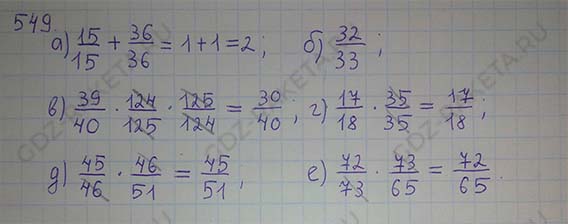 549.
а) 15/15 + 36/36 = 1 + 1 = 2; б) 32/33;
в) 39/40 · 124/125 · 125/124 = 30/40; г) 17/18 · 35/35 = 17/18;
д) 45/46 · 46/51 = 45/51; е) 72/73 · 73/65 = 72/65.